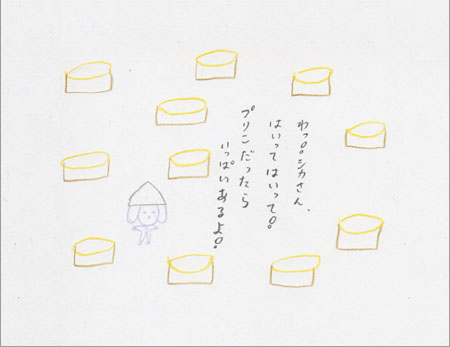 わっ!!シカさん、
はいってはいって!
プリンだったら
いっぱいあるよ!